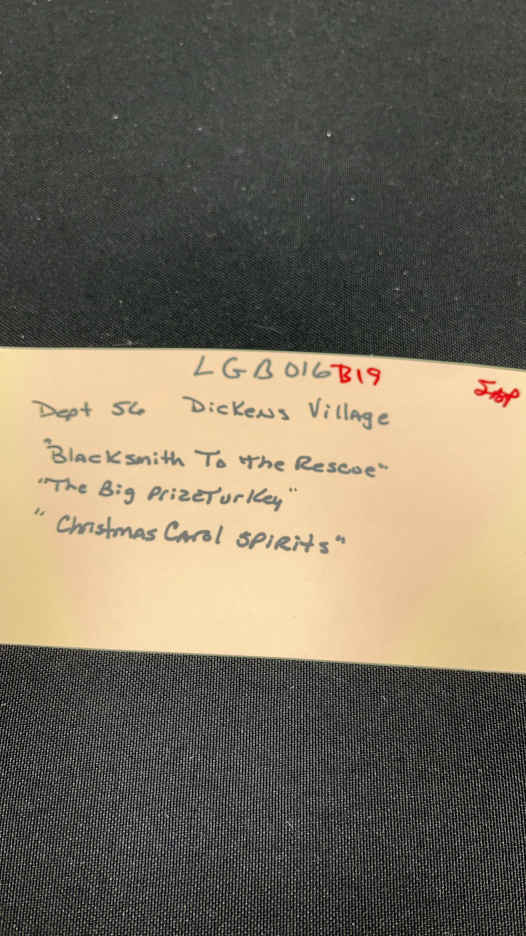 LGB016 B19
Dept 56 Dickens Village
"Blacksmith To the Rescoe"
"The Big PrizeTurkey"
"Christmas Carol SPIRits"